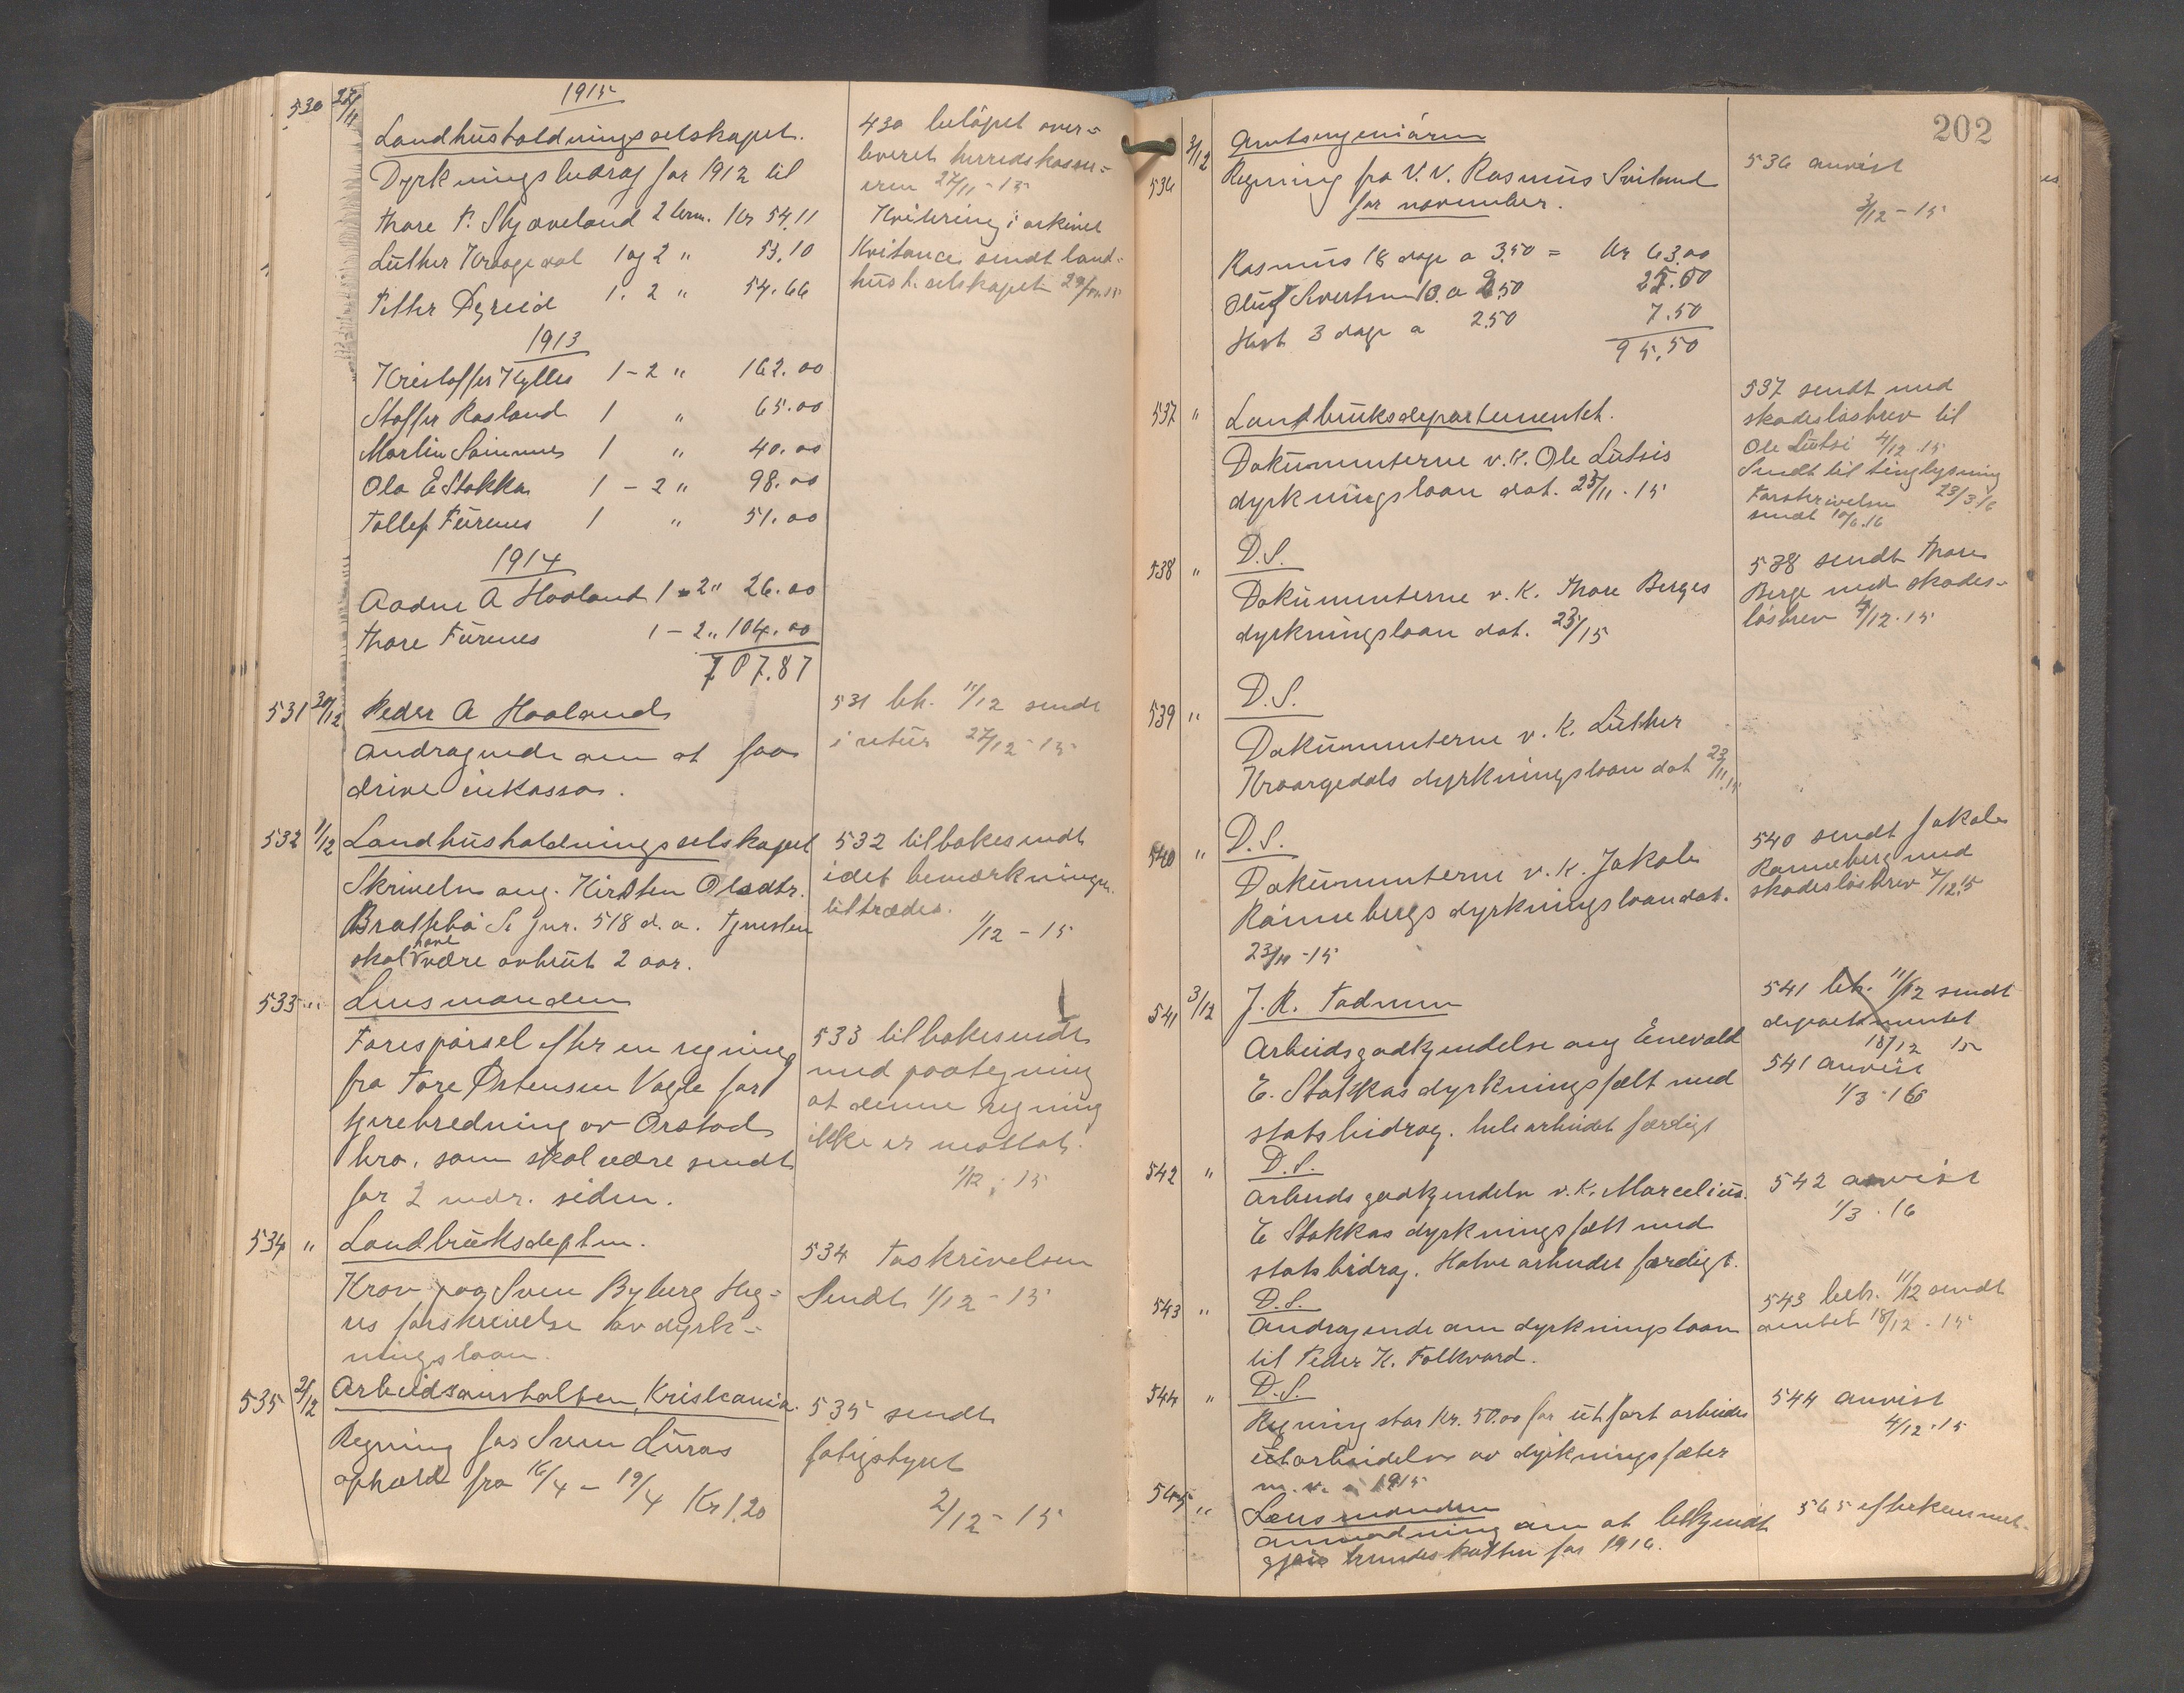 1915
530 27/11
Landhusholdningsselskapet.
Dyrkningsbidrag for 1912 til
Thore P. Skjæveland 2 term. Kr 54,11
Luther Kraagedal 1 og 2 " 53,10
Petter Dyreid 1. 2 " 54.66
1913
Kristoffer Kylles 1 - 2 " 162.00
Stoffer Rosland 1 " 65.00
Martin Somnes 1 " 40.00
Ola E Stokka 1 - 2 " 98.00
Tollef Furenes 1 " 51.00
1914
Aadne A Haaland 1 - 2 " 26.00
Thore Furenes 1 - 2 " 104.00
707.87
430 beløpet over=
leveret herredskasse=
reren 27/11-15
Kvitering i arkivet
Kvitance sendt land=
hush. selskapet 29/11.15
531 30/12 Peder A Haaland
Andragende om at faa
drive inkasso.
531 beh. 11/12 sendt
i retur 27/12-15
532 1/12 Landhusholdningsselskapet
Skrivelse ang. Kirsten Olsdtr.
Bratsebø Se jnr. 518 d.a. tjenesten
have
skal være avbrut 2 aar.
532 tilbakesendt
idet bemærkningen
tiltrædes.
1/12 - 15
533 " Lensmanden
Forespørsel efter en regning
fra Tore Østensen Vagle for
tjærebredning av Orstad
bro, som skal være sendt
for 2 mdr. siden.
533 tilbakesendt
med paategning
at denne regning
ikke er mottat.
1/12. 15
534 " Landbruksdeptm.
Krav paa Sven Byberg Heg=
res forskrivelse av dyrk=
ningslaan.
534 Foskrivelsen
Sendt 1/12 - 15
535 2/12 Arbeidsanstalten, Kristiania.
Regning for Sven Luras
ophold fra 16/4 - 19/4 Kr 1.20
535 sendt
fatigstyret
2/12 - 15
202
3/12 Amtsingeniøren
536 Regning fra V.V. Rasmus Sviland
for november.
Rasmus 18 dage a 3.50 = Kr 63.00
Oluf Sivertsen 10. a 2,50 25.00
Hest 3 dage a 2.50 7.50
95.50
536 anvist
3/12 - 15
537 " Landbruksdepartementet.
Dokumenterne v.k. Ole Lutsis
dyrkningslaan dat. 23/11. 15
537 sendt med
skadesløsbrev til
Ole Lutsi 4/12.15
Sendt til tinglysning
Forskrivelsen 23/3 16
sendt 10/6.16
538 " D.S.
Dokumenterne v.k. Thore Berges
dyrkningslaan dat. 23/15
538 sendt Thore
Berge med skades=
løsbrev 4/12.15
539 " D.S.
Dokumenterne v.k. Luther
Kraagedals dyrkningslaan dat 23/11.15
540 " D.S.
Dokumenterne v.k. Jakob
Rønnebergs dyrkningslaan dat.
23/11 - 15
540 sendt Jakob
Rønneberg med
skadesløsbrev 4/12.15
541 3/12 J. R. Todnem
Arbeidsgodkjendelse ang Enevald
E. Stokkas dyrkningsfelt med
statsbidrag. hele arbeidet færdigt
541 beh. 11/12 sendt
departementet
18/12 15
541 anvist
1/3.16
542 " D.S.
Arbeidsgodkjendelse v.k. Marcelius
E Stokkas dyrkningsfelt med
statsbidrag. Halve arbeidet færdigt.
542 anvist
1/3. 16
543 " D.S.
Andragende om dyrkningslaan
til Peder K. Folkvord.
543 beh. 11/12 sendt
amtet 18/12. 15
544 " D.S.
Regning stor Kr. 50.00 for utført arbeide
utarbeidelse av dyrkningsfelter
m.v. i 1915
544 anvist
4/12.15
545 " Lensmanden
anmodning om at bekjendt
gjøre hundeskatten for 1916.
545 efterkommet.